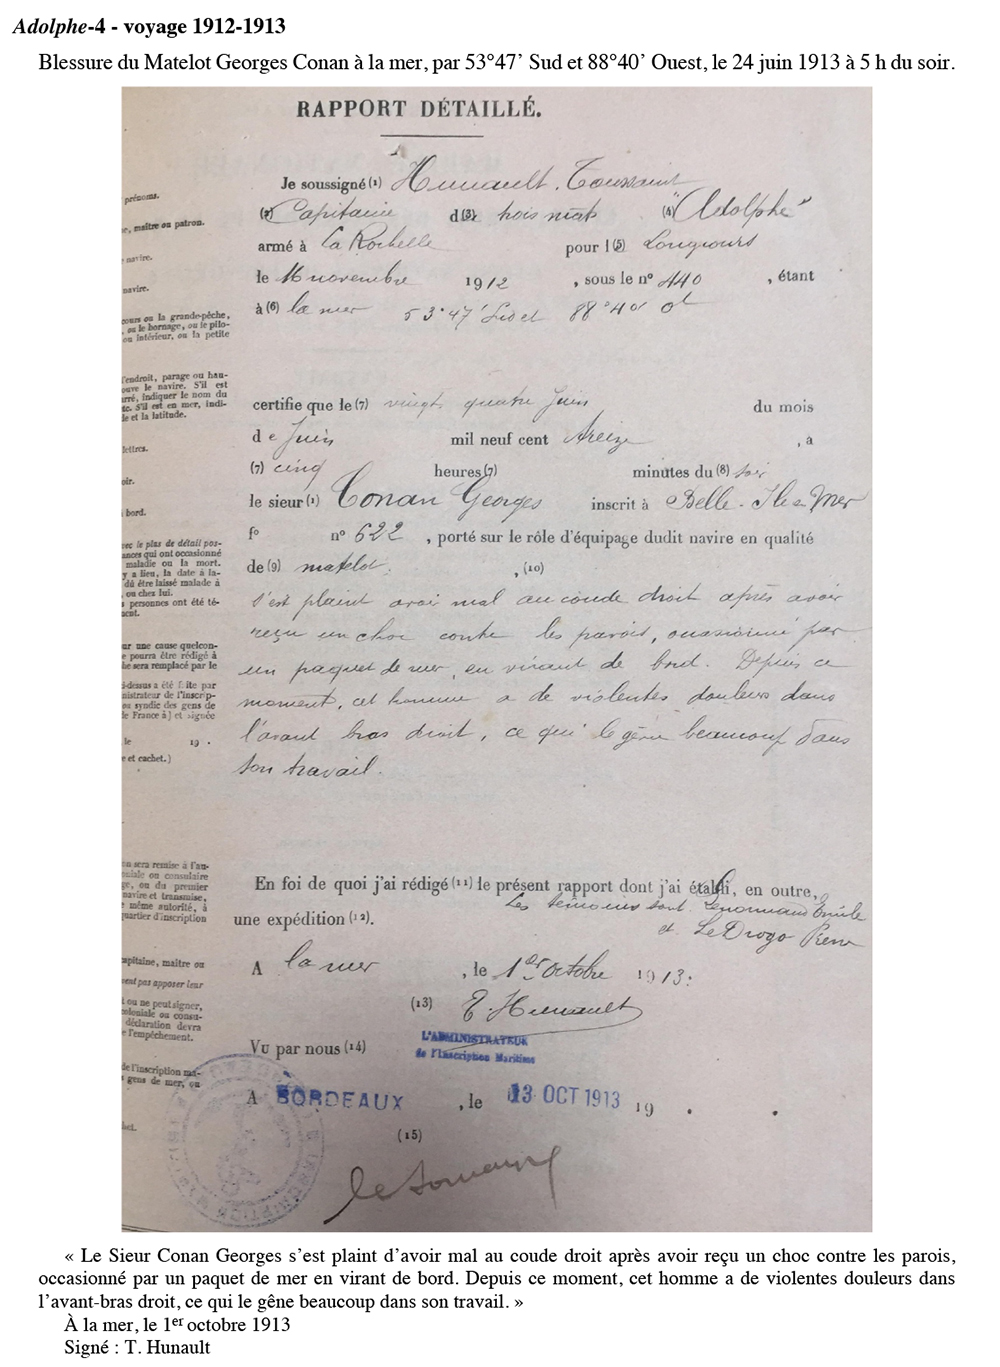 Adolphe-4 - voyage 1912-1913
Blessure du Matelot Georges Conan à la mer, par 53°47’ Sud et 88°40’ Ouest, le 24 juin 1913 à 5 h du soir.
RAPPORT DÉTAILLÉ.
Je soussigné (1) Hunault Toussaint
prénoms.
(2) Capitaine d (3) trois mats (4) "Adolphe"
e, maître ou patron.
armé à La Rochelle pour l (5) Longcours
navire.
le 16 novembre 1912, sous le n° 440, étant
navire.
à (6) la mer 53°47' Sud et 88°40' Ot
cours ou la grande-pêche,
ou le bornage, ou le pilo-
ou intérieur, ou la petite
l'endroit, parage ou hau-
ouve le navire. S'il est
arré, indiquer le nom du
tc. S'il est en mer, indi-
le et la latitude.
certifie que le (7) vingt quatre Juin du mois
de Juin mil neuf cent treize, à
lettres.
(7) cinq heures (7) minutes du (8) soir
oir.
le sieur (1) Conan Georges inscrit à Belle-Ile en Mer
à bord.
f° n° 622, porté sur le rôle d'équipage dudit navire en qualité
de (9) matelot. , (10)
vec le plus de détail pos-
ances qui ont occasionné
maladie ou la mort.
y a lieu, la date à la-
dû être laissé malade à
ou chez lui.
s personnes ont été té-
ent.
s'est plaint avoir mal au coude droit après avoir
reçu un choc contre les parois, occasionné par
un paquet de mer, en virant de bord. Depuis ce
moment, cet homme a de violentes douleurs dans
l'avant bras droit, ce qui le gêne beaucoup dans
son travail.
ur une cause quelcon-
e pourra être rédigé à
he sera remplacé par le
i-dessus a été faite par
nistrateur de l'inscrip-
ou syndic des gens de
de France à) et signée
le 19 .
e et cachet.)
on sera remise à l'au-
niale ou consulaire
ge, ou du premier
navire et transmise,
e même autorité, à
quartier d'inscription
En foi de quoi j'ai rédigé (11) le présent rapport dont j'ai établi, en outre,
une expédition (12).
Les témoins sont Lenormand Emile
et Le Drogo Pierre
apitaine, maître ou
vent pas apposer leur
t ou ne peut signer,
coloniale ou consu-
déclaration devra
e l'empêchement.
A la mer, le 1er Octobre 1913.
(13) T. Hunault
Vu par nous (14)
L'ADMINISTRATEUR
de l'Inscription Maritime
de l'inscription ma-
s gens de mer, ou
A BORDEAUX, le 13 OCT 1913 19 .
het.
(15)
« Le Sieur Conan Georges s’est plaint d’avoir mal au coude droit après avoir reçu un choc contre les parois,
occasionné par un paquet de mer en virant de bord. Depuis ce moment, cet homme a de violentes douleurs dans
l’avant-bras droit, ce qui le gêne beaucoup dans son travail. »
À la mer, le 1er octobre 1913
Signé : T. Hunault